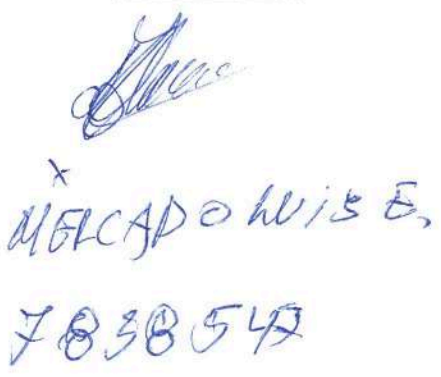 x
MERCADO LUIS E.
7838547